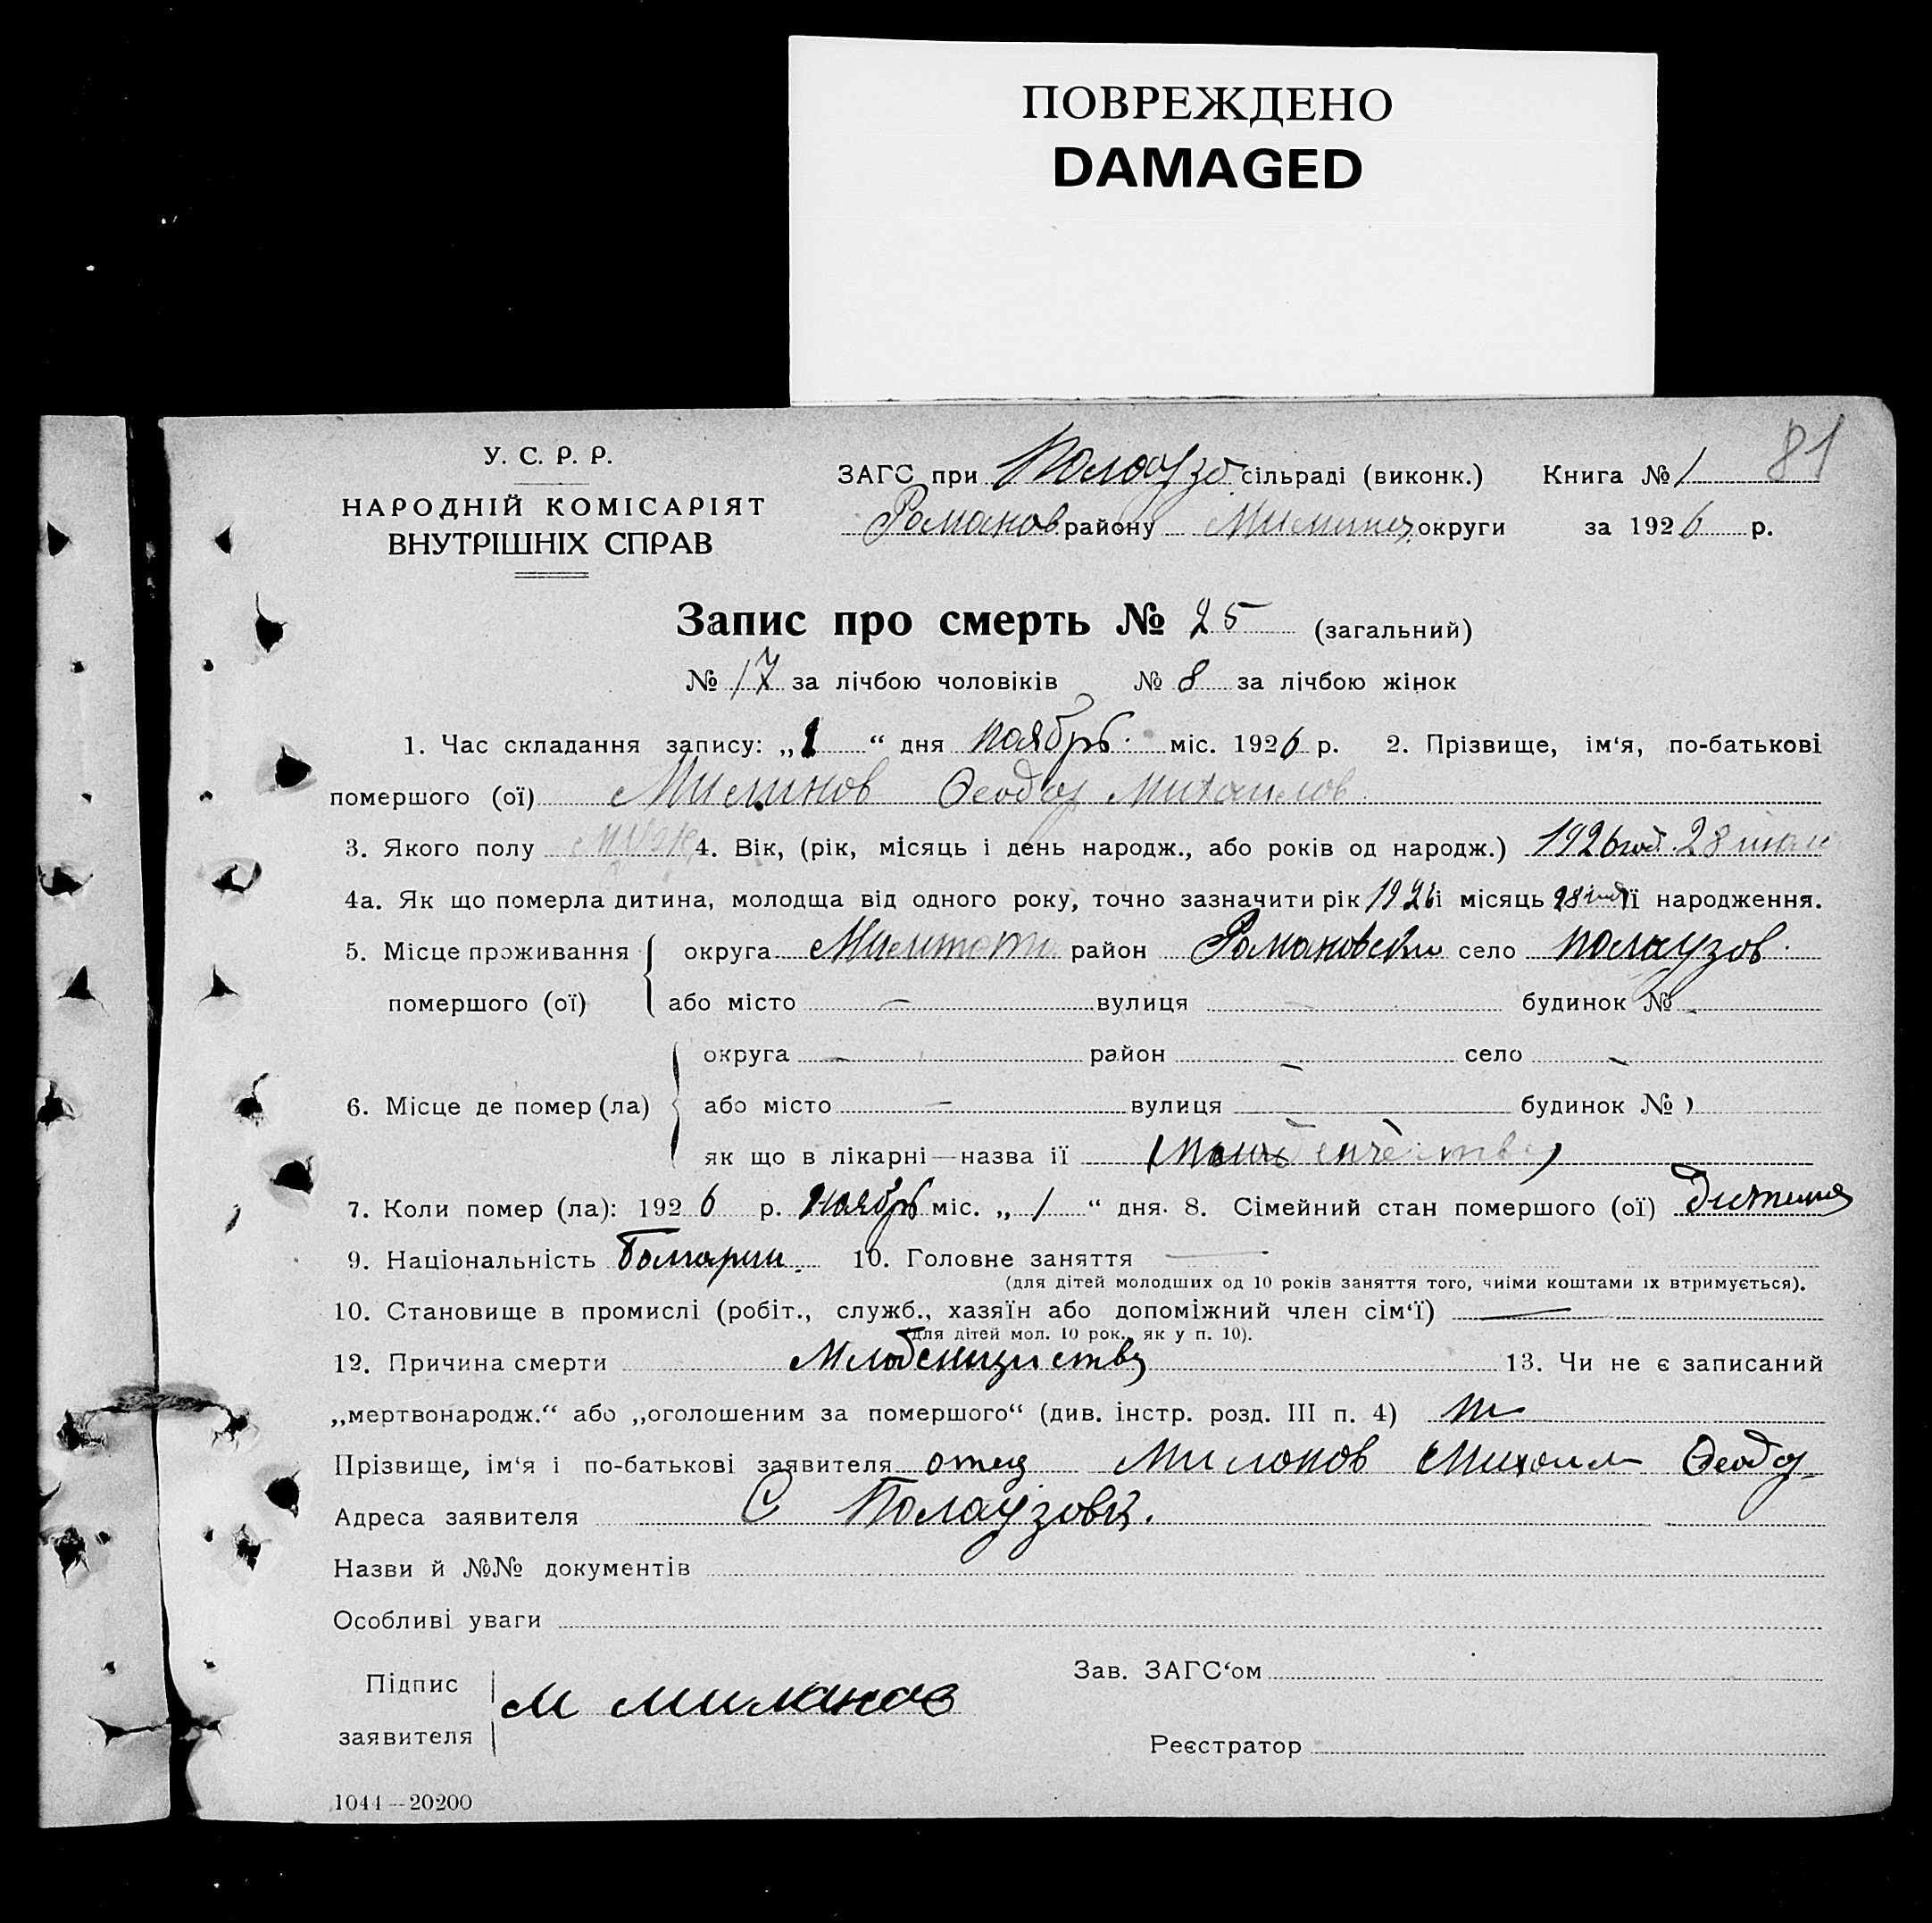 ПОВРЕЖДЕНО
DAMAGED
81
У. С. Р. Р.
НАРОДНІЙ КОМІСАРІЯТ
ВНУТРІШНІХ СПРАВ
ЗАГС при сільраді (виконк.) Книга № 1
Романов району округи за 1926 р.
Запис про смерть № 25 (загальний)
№ 17 за лічбою чоловіків № 8 за лічбою жінок
1. Час складання запису: „1“ дня ноябрь міс. 1926 р. 2. Прізвище, ім‘я, по-батькові
помершого (ої) Милинов Феодор Михаилов
3. Якого полу муж 4. Вік, (рік, місяць і день народж., або років од народж.) 1926 год. 28
4а. Як що померла дитина, молодша від одного року, точно зазначити рік 1926 і місяць 28 її народження.
5. Місце проживання округа район Романовски село Полаузов
помершого (ої) або місто — вулиця — будинок № -
округа — район — село —
6. Місце де помер (ла) або місто — вулиця будинок №
як що в лікарні—назва її
7. Коли помер (ла): 1926 р. ноябрь міс. „1“ дня. 8. Сімейний стан помершого (ої) дитина
9. Національність Болгарин. 10. Головне заняття —
(для дітей молодших од 10 років заняття того, чиїми коштами їх втримується).
10. Становище в промислі (робіт., служб., хазяїн або допоміжний член сім‘ї) —
(для дітей мол. 10 рок., як у п. 10).
12. Причина смерти 13. Чи не є записаний
„мертвонародж.“ або „оголошеним за помершого“ (див. інстр. розд. III п. 4)
Прізвище, ім‘я і по-батькові заявителя отец Милонов Михаил Феодор
Адреса заявителя С Полаузовка.
Назви й №№ документів
Особливі уваги
Підпис
заявителя
М Миланов
Зав. ЗАГС‘ом
Реєстратор
1044—20200